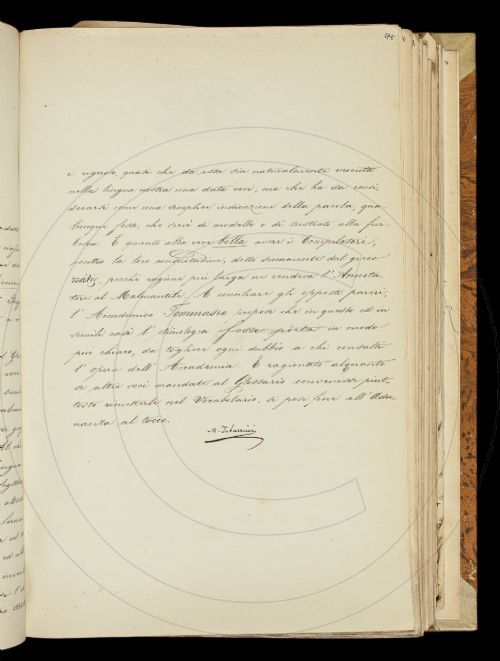 195
e rigoroso, quasi che da essa sia naturalmente venuta
nella lingua nostra una data voce; ma che ha da consi-
derarsi come una semplice indicazione della parola, qua-
lunque fosse, che servì di modello o di sustrato alla fur-
besca. E quanto alla voce bolla avere il Compilatore,
contro la loro consuetudine, detto sicuramente dal greco
πόλις, perchè ragione più larga ne rendeva l'Annota-
tore al Malmantile. A conciliare gli opposti pareri,
l'Accademico Tommaseo propose che in questo ed in
simili casi l'etimologia fosse pòrta in modo
più chiaro, da togliere ogni dubbio a chi consulti
l'opera dell'Accademia. E ragionato alquanto
se altre voci mandate al Glossario convenisse piut-
tosto rimetterle nel Vocabolario, si pose fine all'Adu-
nanza al tocco.
M. Tabarrini